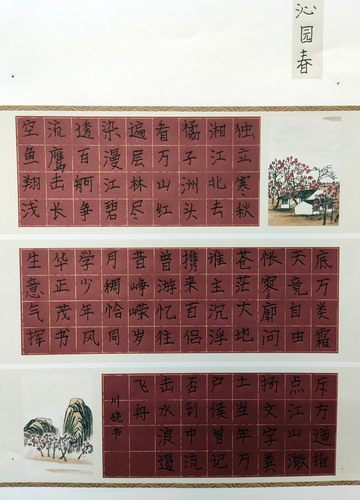 沁园春
独立寒秋
湘江北去
橘子洲头
看万山红
遍层林尽
染漫江碧
透百舸争
流鹰击长
空鱼翔浅
底万类霜
天竞自由
怅寥廓问
苍茫大地
谁主沉浮
携来百侣
曾游忆往
昔峥嵘岁
月稠恰同
学少年风
华正茂书
生意气挥
斥方遒指
点江山激
扬文字粪
土当年万
户侯曾记
否到中流
击水浪遏
飞舟
川娆书